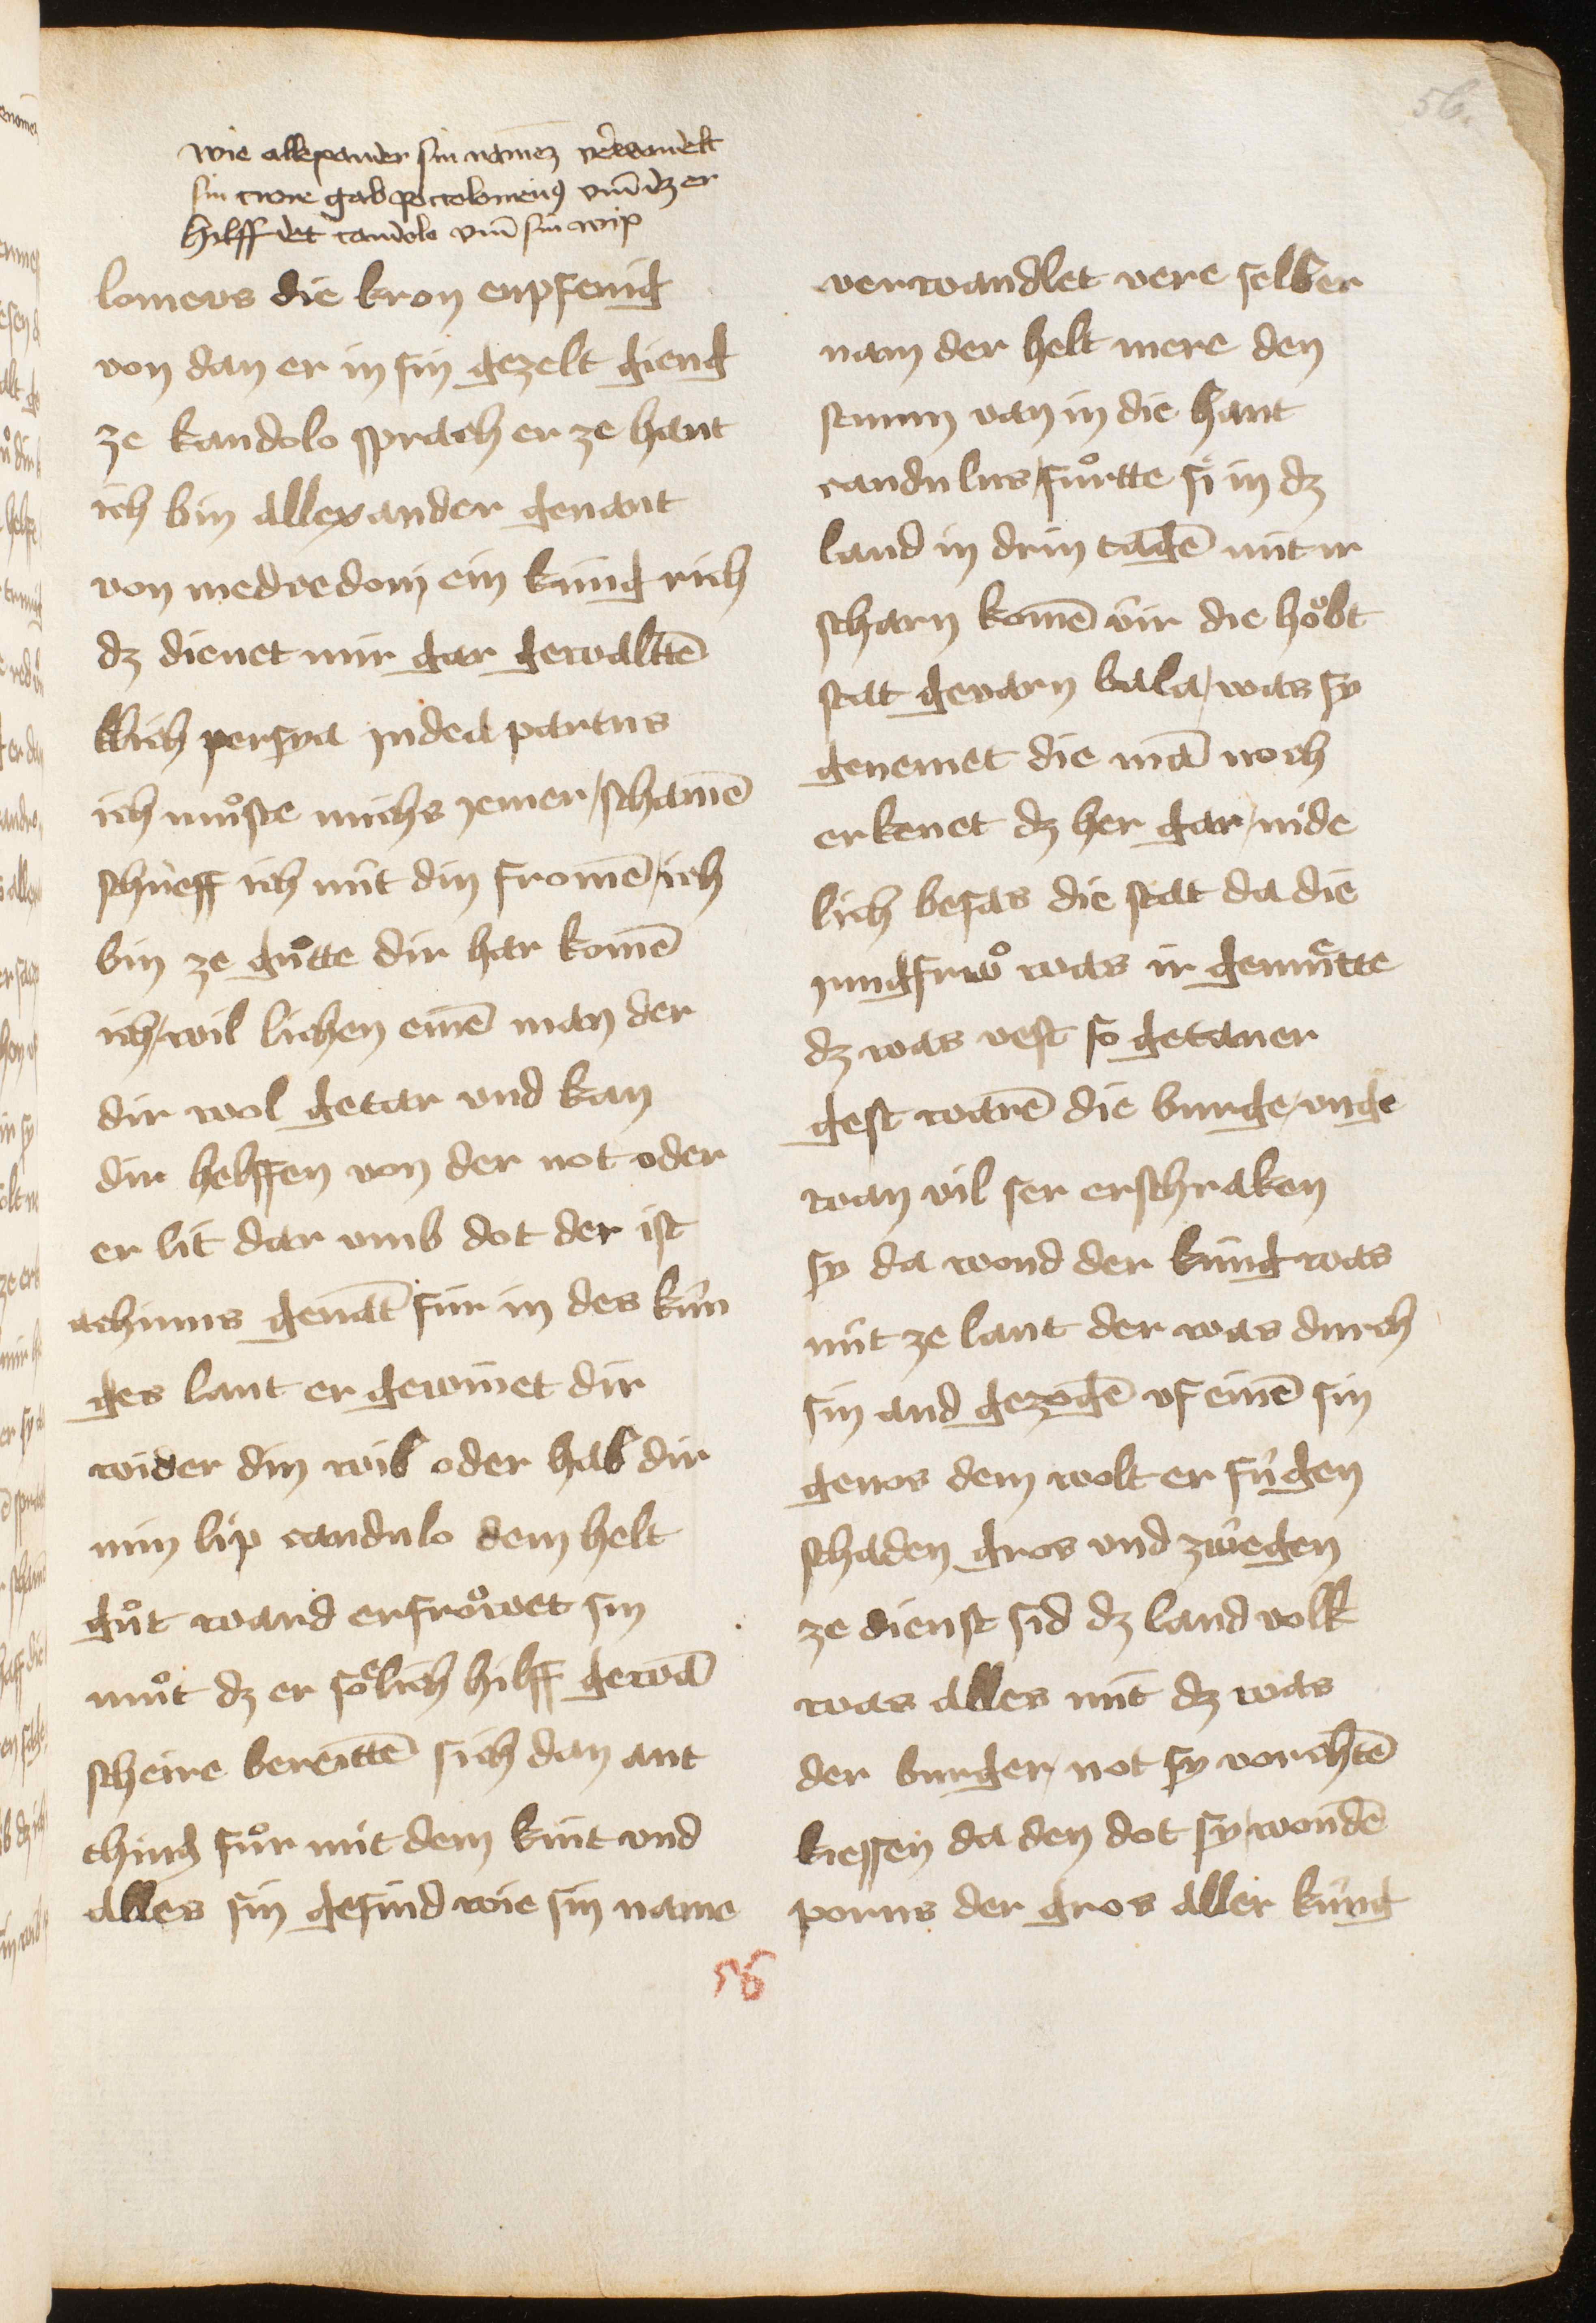 56.
wie allexander sin namen verwandelt
sin crone gab ptolomeus vm dz er
hilff det candolo vm sin wip
lomeus die kron enpfenig
von dan er in sin gezelt gieng
ze kandolo sprach er ze hant
ich bin allexander genant
von medzedom ein kúng rich
dz dienet mir gar gewalttē
klich persya indea partus
ich mu̍ste michs iemer schamē
schúeff ich nút din fromē ich
bin ze gůtte dir har komē
ich wil lichen einē man der
dir wol getar vnd kan
dir helffen von der not oder
er lit dar vmb dot der ist
genāt für in des kún
ges lant er gewinet dir
wider din wib oder hab dir
min lip candulo dem helt
gůt ward erfrôwet sin
můt dz er sőlich hilff gewā
scheire bereittē sich dan ant
thing fůr mit dem kint vnd
alles sin gesind wie sin name
verwandlet vere selber
nam der helt mere den
stumm van in die hant
candulus fůrtte si in dz
land in drin tagē mit ir
scharn komē vúr die hôbt
stat gevarn bala was sy
genemet die mā noch
erkenet dz her gar nide
lich besas die stat da die
jungfrwͦ was ir gemůtte
dz was vest so getaner
gest warē die burge vnge
wan vil ser erschraken
sy da wond der kúng was
nút ze lant der was durch
sin and gezogē vf einē sin
genos dem wolt er fúgen
schaden gros vnd zwegen
ze dienst sid dz land volk
was alles mit dz was
der burger not sy vorchtē
kiessen da den dot sy wondē
porus der gros aller kúng
56